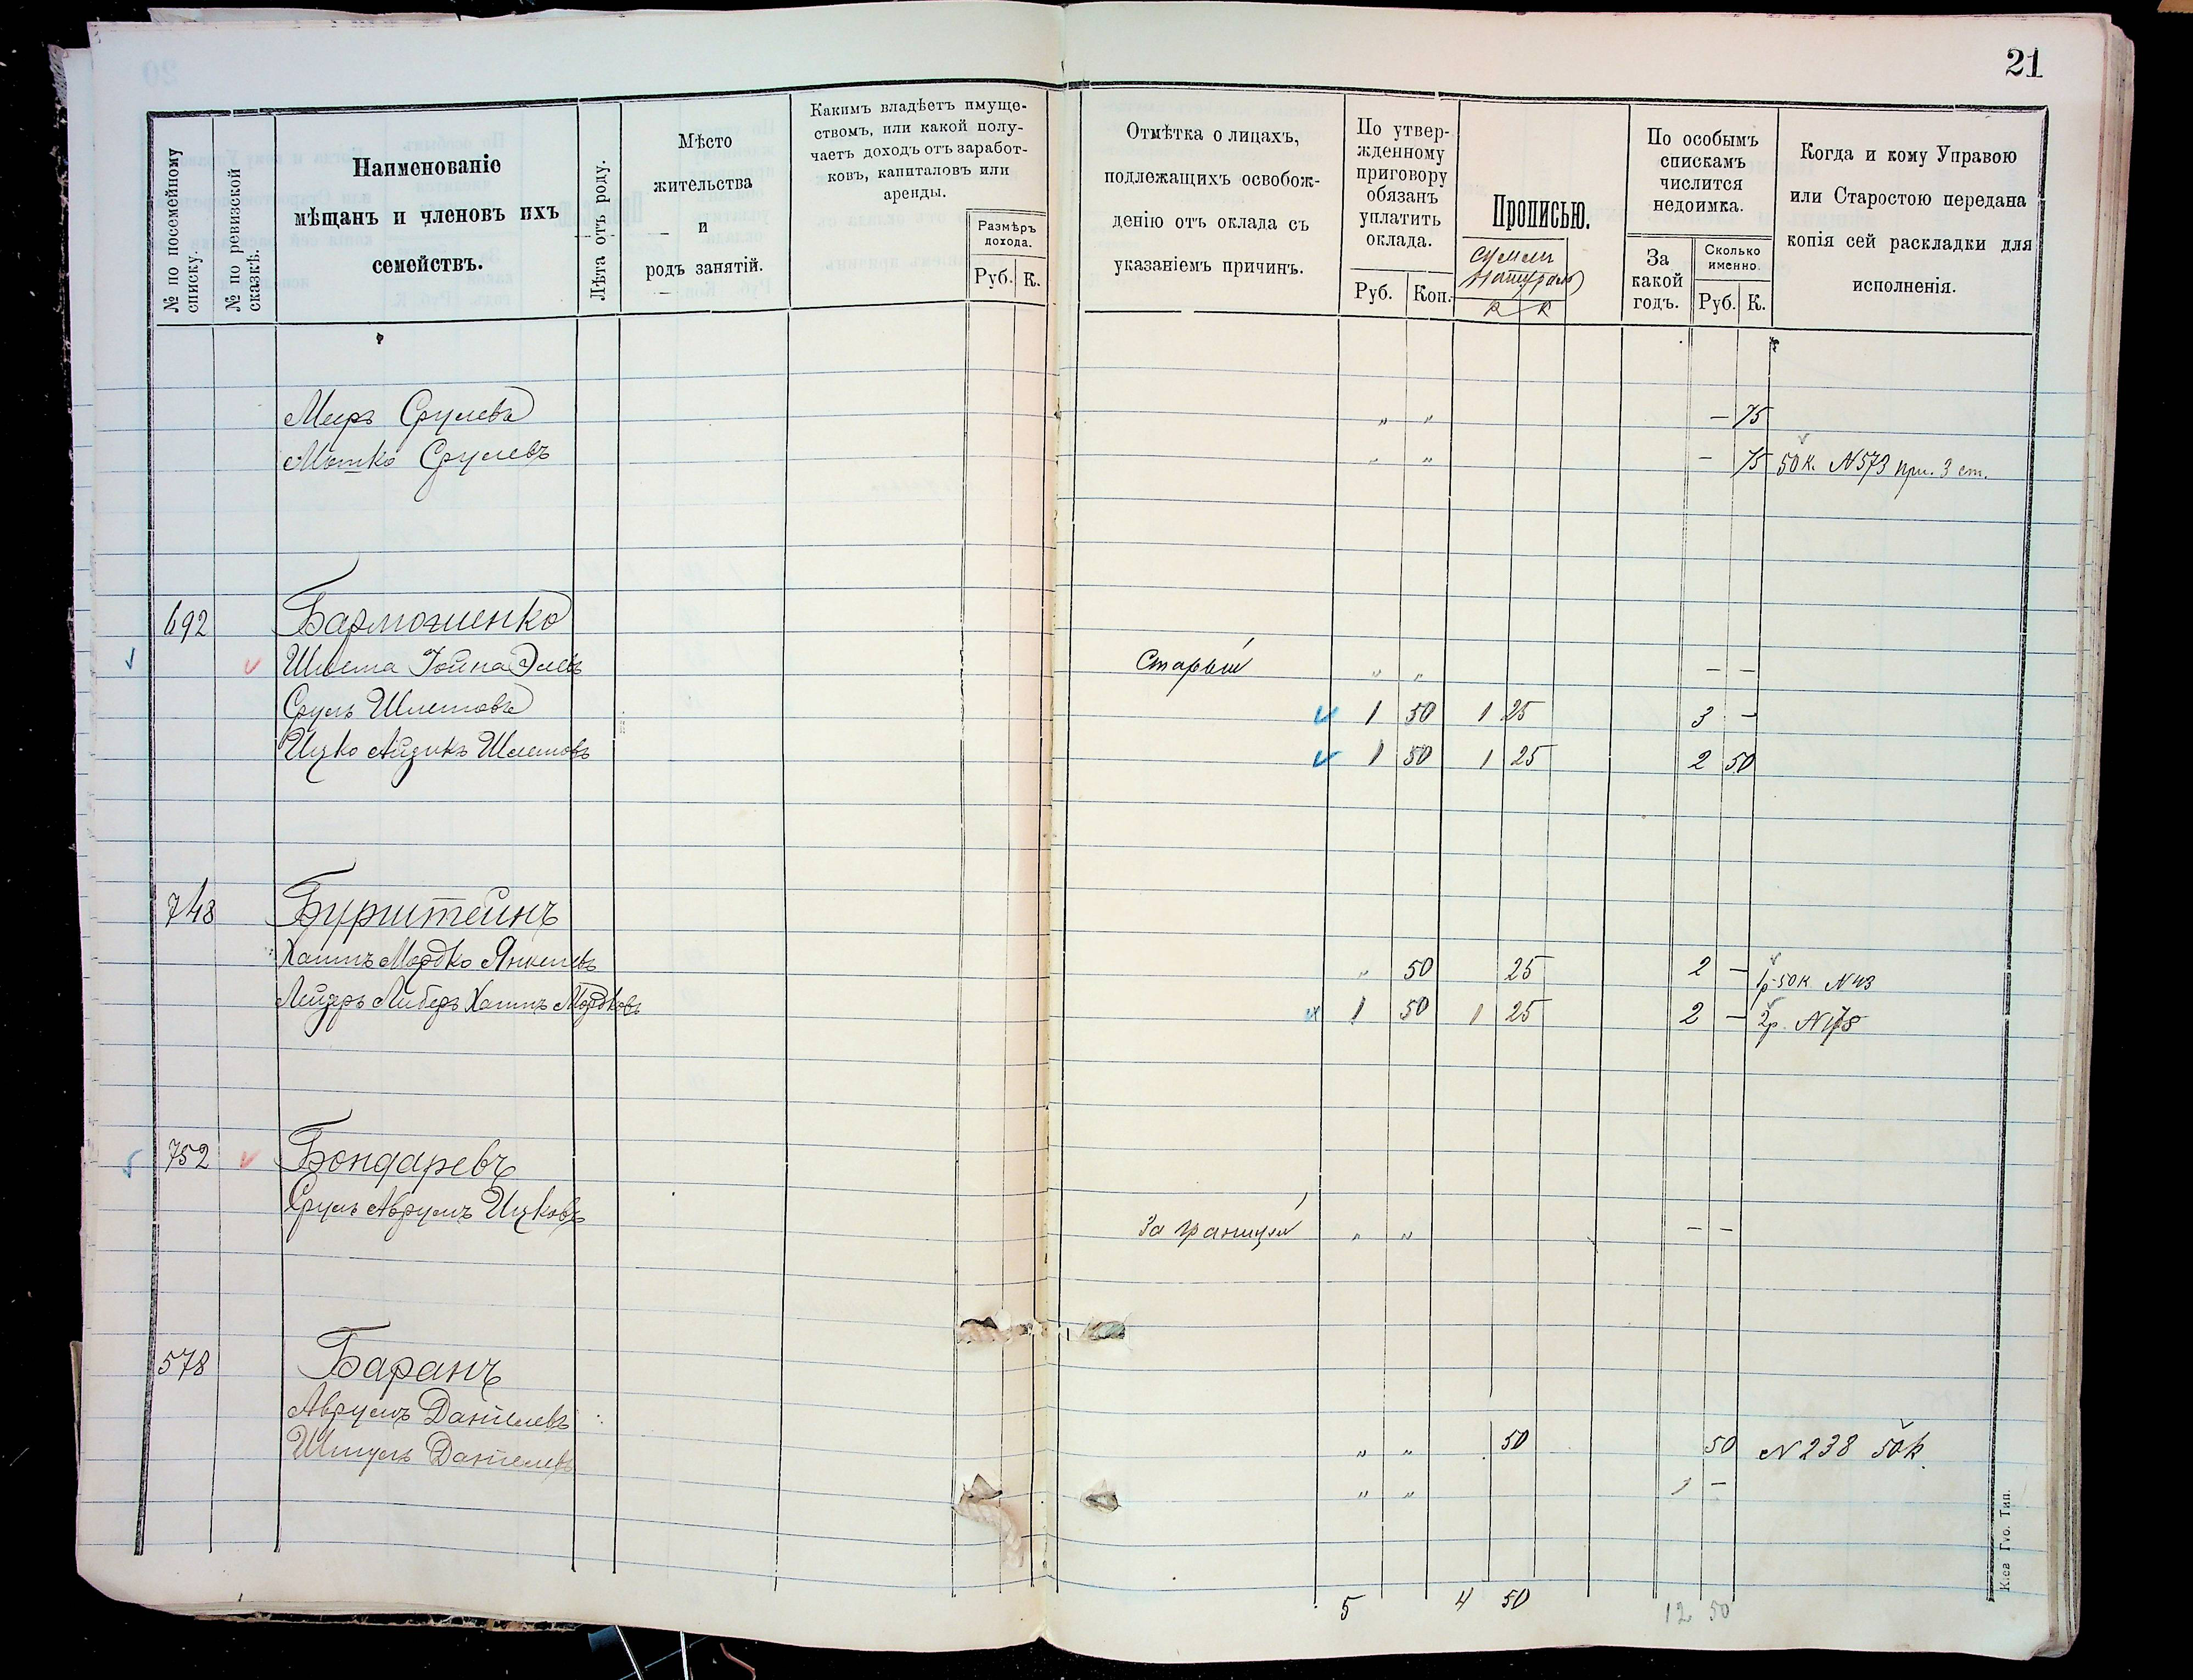 21
№ по посемейному списку.
№ по ревизской сказкѣ.
Наименованіе
мѣщанъ и членовъ ихъ
семействъ.
Лѣта отъ роду.
Мѣсто
жительства
и
родъ занятій.
Какимъ владѣетъ имуще-
ствомъ, или какой полу-
чаетъ доходъ отъ заработ-
ковъ, капиталовъ или
аренды.
Размѣръ
дохода.
Руб. К.
Отмѣтка о лицахъ,
подлежащихъ освобож-
денію отъ оклада съ
указаніемъ причинъ.
По утвер-
жденному
приговору
обязанъ
уплатить
оклада.
Руб. Коп.
Прописью.
По особымъ
спискамъ
числится
недоимка.
За
какой
годъ.
Сколько
именно.
Руб. К.
Когда и кому Управою
или Старостою передана
копія сей раскладки для
исполненія.
Меиръ Срулевъ „ „ — 75
Мошко Срулевъ „ „ — 75 50 к. N 573 3 ст.
692 Бармошенко
Иойна Старый „ „ — —
Сруль Шлемовъ 1 50 1 25 3 —
Ицко Айзикъ Шлемовъ 1 50 1 25 2 50
748 Бурштейнъ
Хаимъ Мордко Янкелевъ „ 50 25 2 — 1р 50к N 43
Лейзеръ Либеръ Хаимъ Мордковъ 1 50 1 25 2 — 2р. N 178
752 Бондаревъ
Сруль Аврумъ Ицковъ За границей „ „ — —
578 Баранъ
Аврумъ Даніелевъ „ „ 50 50 N 238 50 к.
Шмуль Даніелевъ „ „ 1 —
5 4 50 12 50